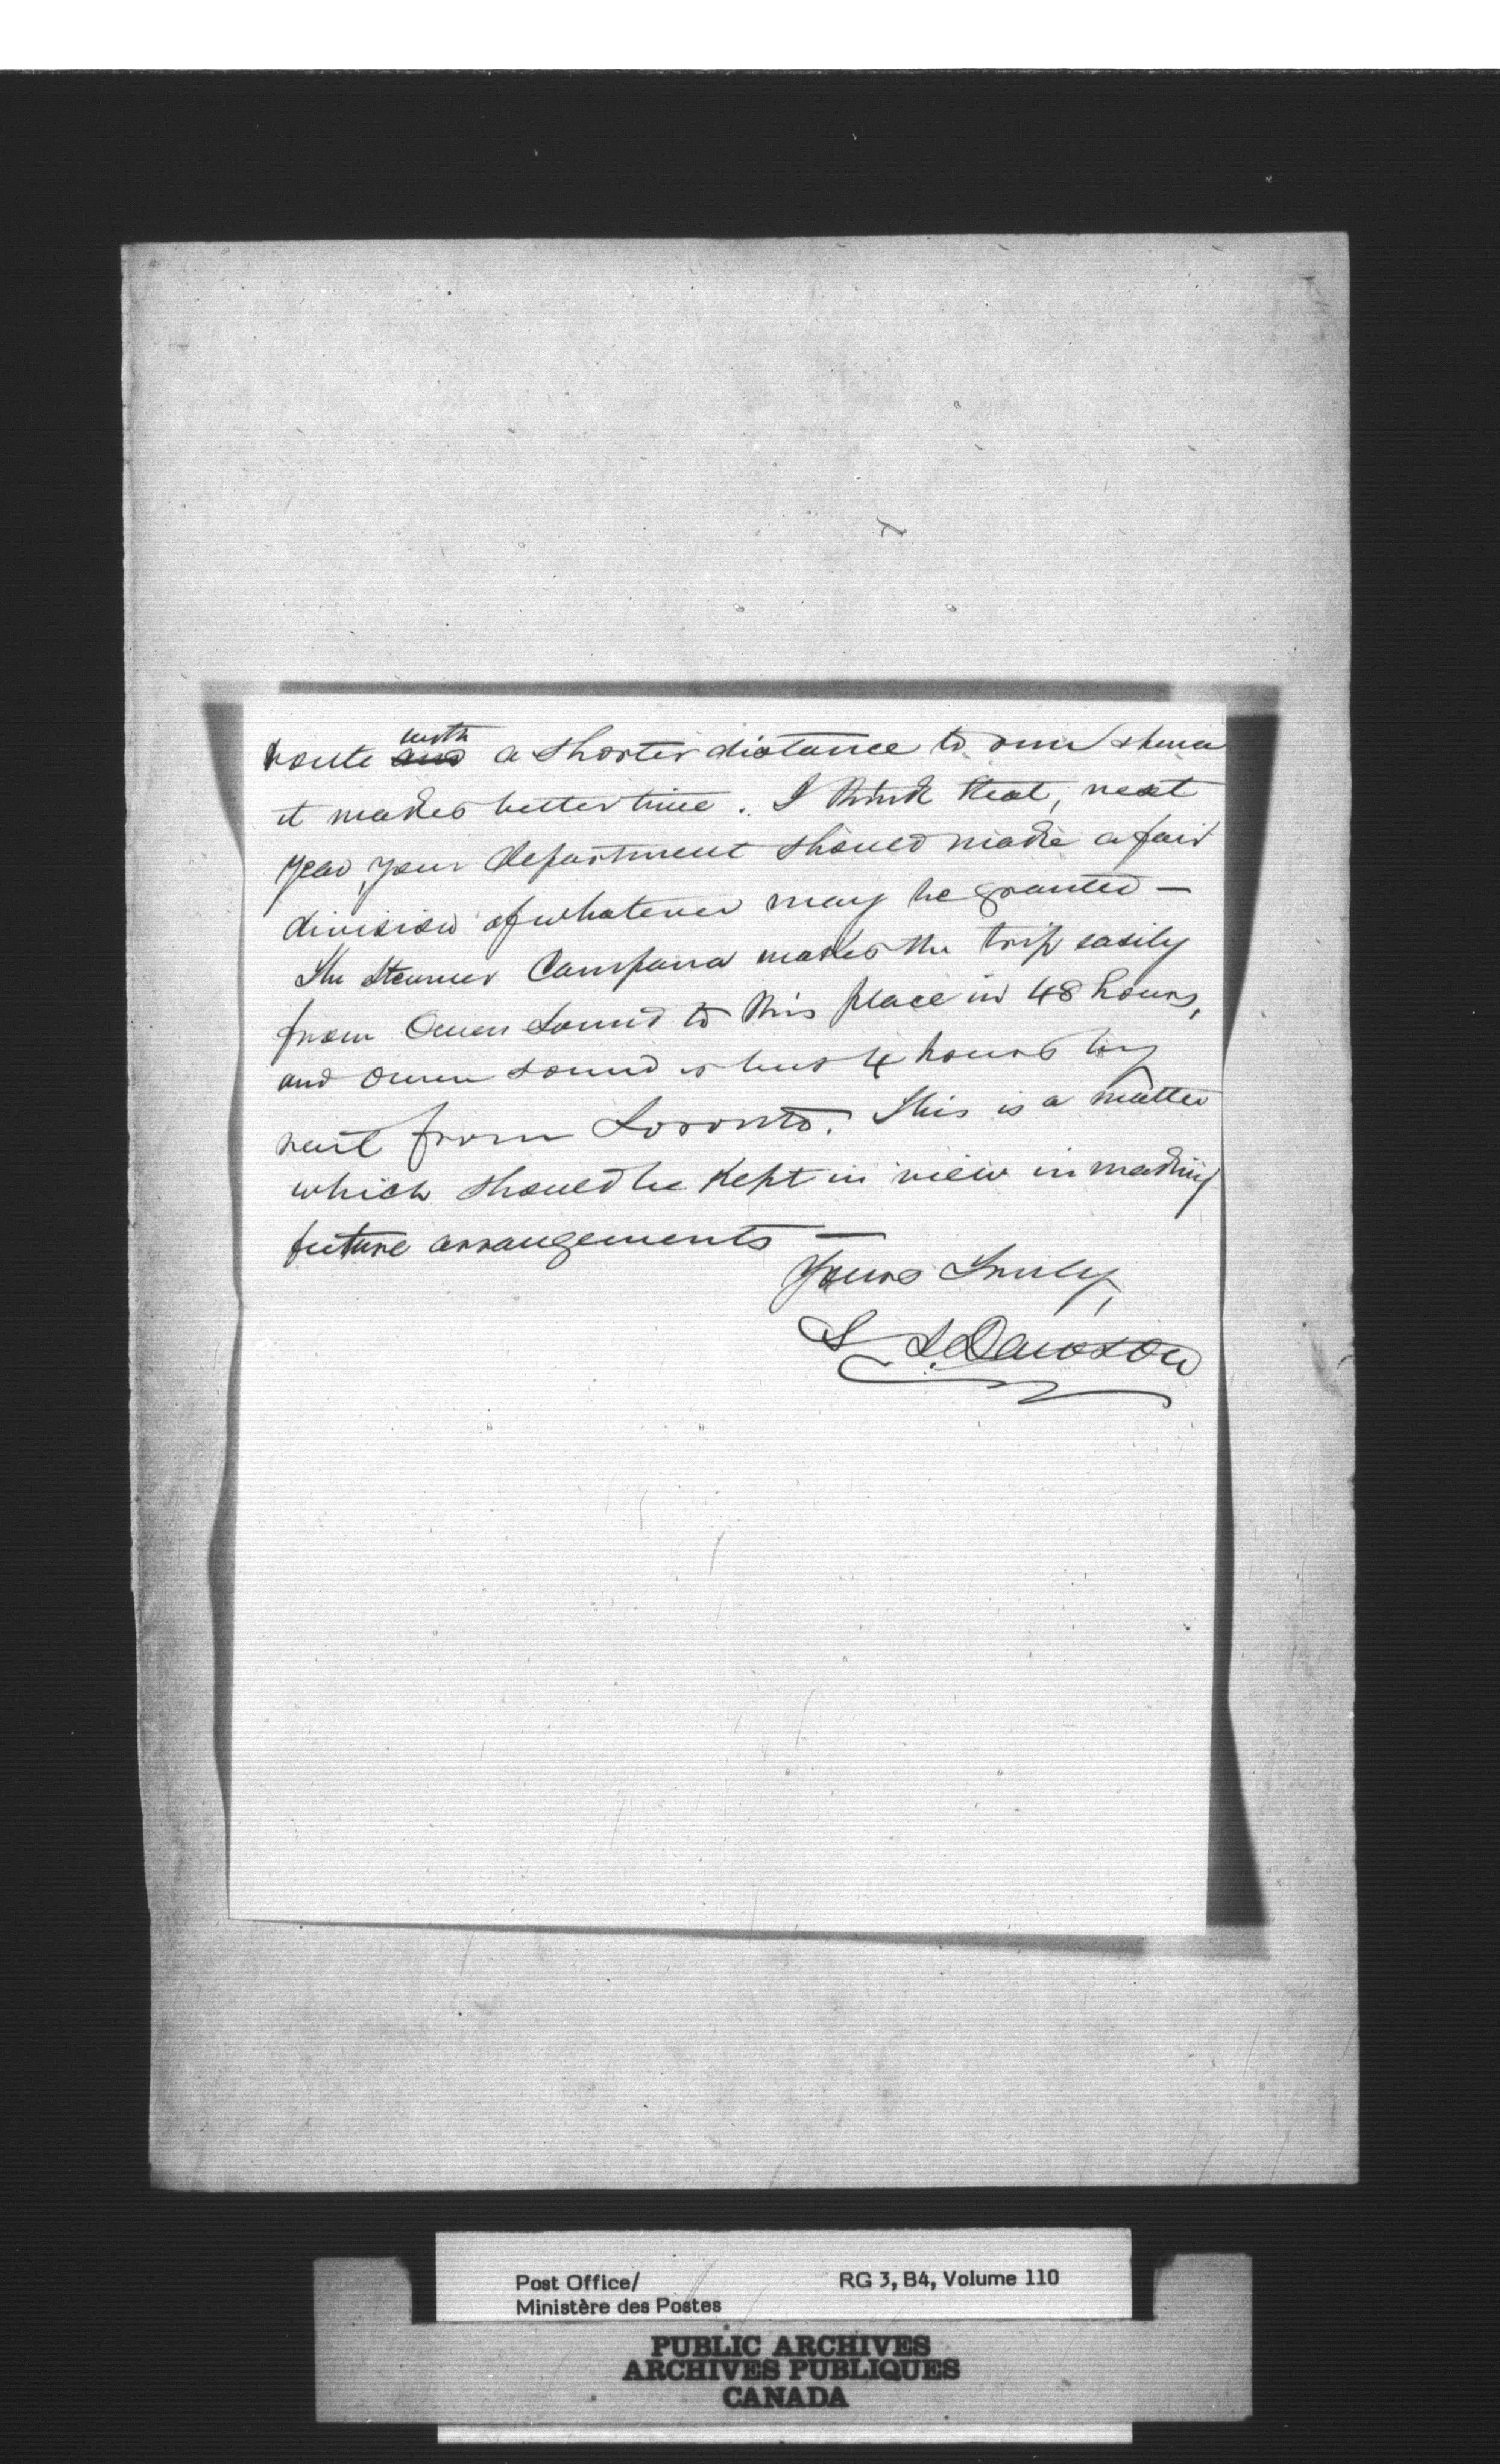 route with and a shorter distance to run
it makes better time. I think that, next
year, your department should make a fair
division of whatever may be granted —
The Steamer Campana makes the trip easily
from Owen Sound to this place in 48 hours,
and Owen Sound is but 4 hours by
rail from Toronto. This is a matter
which should be kept in view in making
future arrangements —
Yours Truly,
S. J. Dawson
Post Office/
Ministère des Postes
RG 3, B4, Volume 110
PUBLIC ARCHIVES
ARCHIVES PUBLIQUES
CANADA